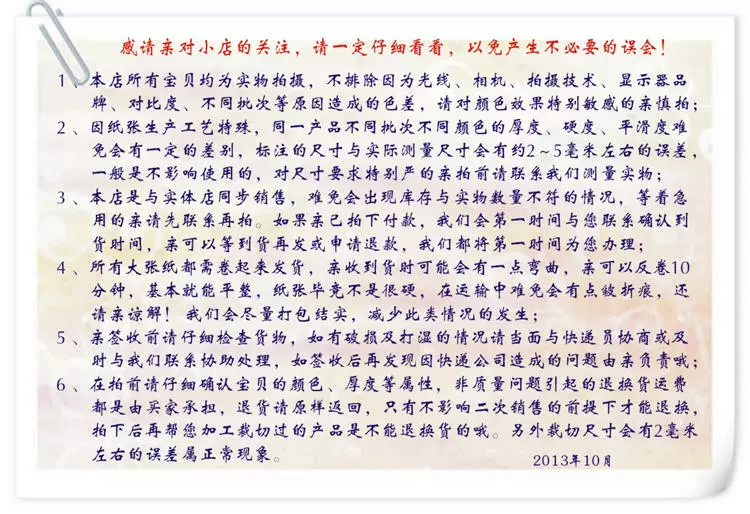 感请亲对小店的关注，请一定仔细看看，以免产生不必要的误会！
1、本店所有宝贝均为实物拍摄，不排除因为光线、相机、拍摄技术、显示器品
牌、对比度、不同批次等原因造成的色差，请对颜色效果特别敏感的亲慎拍；
2、因纸张生产工艺特殊，同一产品不同批次不同颜色的厚度、硬度、平滑度难
免会有一定的差别，标注的尺寸与实际测量尺寸会有约2～5毫米左右的误差，
一般是不影响使用的，对尺寸要求特别严的亲拍前请联系我们测量实物；
3、本店是与实体店同步销售，难免会出现库存与实物数量不符的情况，等着急
用的亲请先联系再拍。如果亲已拍下付款，我们会第一时间与您联系确认到
货时间，亲可以等到货再发或申请退款，我们都将第一时间为您办理；
4、所有大张纸都需卷起来发货，亲收到货时可能会有一点弯曲，亲可以反卷10
分钟，基本就能平整，纸张毕竟不是很硬，在运输中难免会有点皱折痕，还
请亲谅解！我们会尽量打包结实，减少此类情况的发生；
5、亲签收前请仔细检查货物，如有破损及打湿的情况请当面与快递员协商或及
时与我们联系协助处理，如签收后再发现因快递公司造成的问题由亲负责哦；
6、在拍前请仔细确认宝贝的颜色、厚度等属性，非质量问题引起的退换货运费
都是由买家承担，退货请原样返回，只有不影响二次销售的前提下才能退换，
拍下后再帮您加工裁切过的产品是不能退换货的哦。另外裁切尺寸会有2毫米
左右的误差属正常现象。
2013年10月